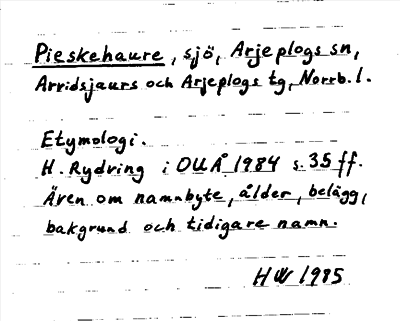 Pieskehaure, sjö, Arjeplogs sn,
Arvidsjaurs och Arjeplogs tg, Norrb. l.
Etymologi.
H. Rydving i OUÅ 1984 s. 35 ff.
Även om namnbyte, ålder, belägg,
bakgrund och tidigare namn.
HW 1985